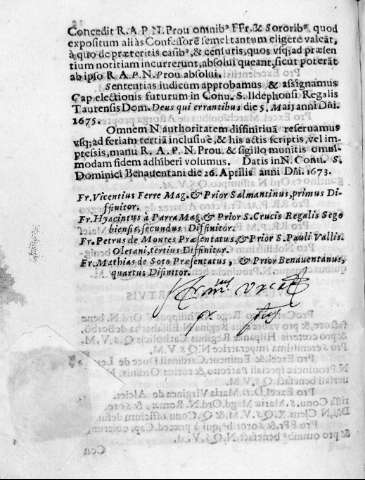 Concedit R. A. P. N. Prou omnibᵒ FFr. & Sororibᵒ, quod
expositum aliàs Confessorē semel tantum eligere valeāt,
à quo de præteritis casibᵒ, & censuris, quos usq; ad præsen
tem notitiam incurrerunt, absolui queant, sicut poterāt
ab ipso R. A. P. N. Prou. absolui.
Sententias iudicum approbamus, & assignamus
Cap. electionis futurum in Conu. S. Illdephonsi Regalis
Taurensis Dom. Deus qui errantibus die 5. Maij anni Dñi.
1675.
Omnem N authoritatem diffinitiuā reseruamus
vsq; ad feriam tertiā inclusiuè, & his actis scriptis, vel im-
præssis, manu R. A. P. N. Prou, & sigillo munitis omni-
modam fidem adhiberi volumus. Datis in N. Conu. S.
Dominici Benauentani die 26. Aprilis anni Dñi. 1673.
Fr. Vicentius Ferre Mag. & Prior Salmantinus, primus Di-
finitor.
Fr. Hyacintus à Parra Mag. & Prior S. Crucis Regalis Sego
biensis, secundus Diffinitor.
Fr. Petrus de Montes Præsentatus, & Prior S. Pauli Vallis.
Oletani, tertius Diffinitor.
Fr. Mathias de Soto Præsentatus, & Prior Benauentanus,
quartus Difinitor.